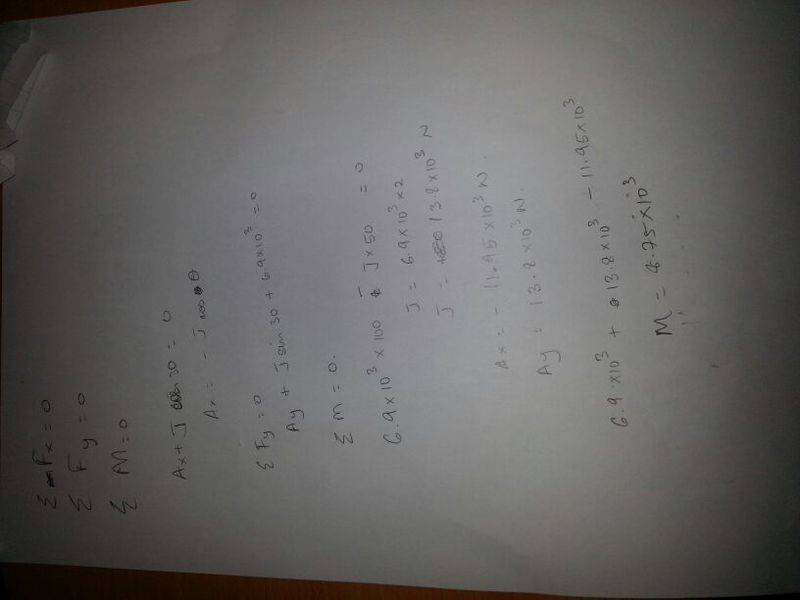 Σ Fx = 0
Σ Fy = 0
Σ M = 0
Ax + J sin 30 = 0
Ax = - J cos θ
Σ Fy = 0
Ay + J sin 30 + 6.9 x 10³ = 0
Σ m = 0.
6.9 x 10³ x 100 - J x 50 = 0
J = 6.9 x 10³ x 2
J = 13.8 x 10³ N
Ax = - 11.95 x 10³ N.
Ay = 13.8 x 10³ N.
6.9 x 10³ + 13.8 x 10³ - 11.95 x 10³
M = 8.75 x 10³